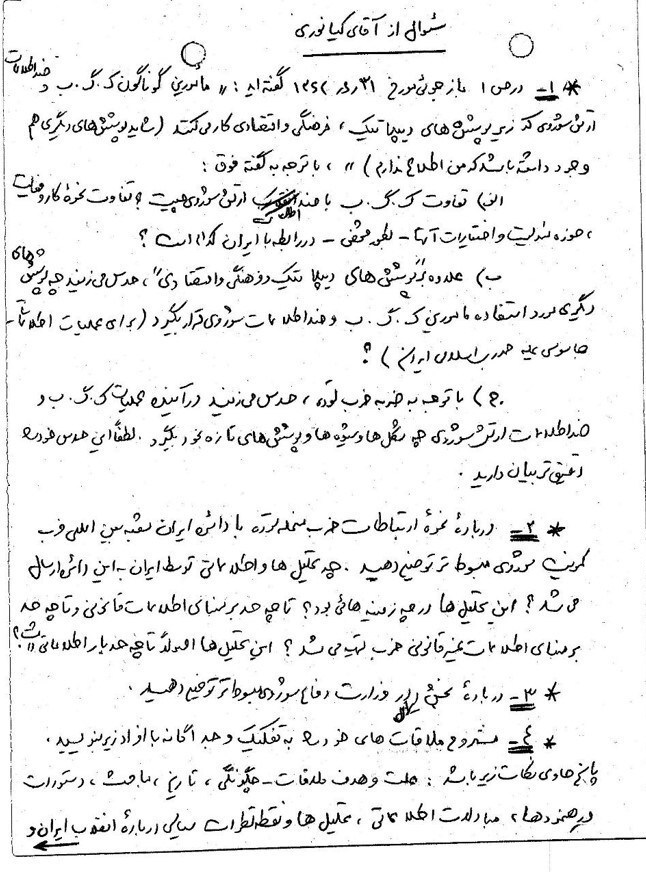 سئوال از آقای کیانوری
* ۱- درص ۱ بازجوئی مورخ ۳۱ر ۱۳۶۲ گفته اید: «مأمورین گوناگون ک.گ.ب و ضد اطلاعات
ارتش شوروی که زیر پوشش های دیپلماتیک، فرهنگی و اقتصادی کار می کنند (شاید پوشش های دیگری هم
وجود داشته باشد که من اطلاع ندارم)»، با توجه به گفته فوق:
الف) تفاوت ک.گ.ب با ضد اطلاعات ارتش شوروی چیست؟ تفاوت نحوۀ کار و فعالیت
، حوزه مسئولیت و اختیارات آنها - بطور مشخص - در رابطه با ایران کدام است؟
ب) علاوه بر "پوشش های دیپلماتیک و فرهنگی و اقتصادی"، حدس می زنید چه پوشش های
دیگری مورد استفاده مامورین ک.گ.ب و ضد اطلاعات شوروی قرار بگیرد (برای عملیات اطلاعاتی-
جاسوسی علیه جمهوری اسلامی ایران)؟
ج) با توجه به ضربه حزب توده، حدس می زنید در آینده عملیات ک.گ.ب و
ضد اطلاعات ارتش شوروی چه شکل ها و شیوه ها و پوشش های تازه بخود بگیرد. لطفاً این حدس خود را
دقیق تر بیان دارید.
* ۲- دربارۀ نحوۀ ارتباطات حزب منحله توده با دائره ایران شعبه بین المللی حزب
کمونیست شوروی مبسوط تر توضیح دهید. چه تحلیل ها و اطلاعاتی توسط ایران به این دائره ارسال
می شد؟ این تحلیل ها در چه زمینه هائی بود؟ تا چه حد بر مبنای اطلاعات قانونی و تا چه حد
بر مبنای اطلاعات غیر قانونی حزب تهیه می شد؟ این تحلیل ها اصولاً تا چه حد بار اطلاعاتی داشت؟
* ۳- دربارۀ بخش وزارت دفاع شوروی مبسوط تر توضیح دهید.
* ٤- مشروح ملاقات های خود را به تفکیک و جداگانه با افراد زیر بنویسید.
پاسخ حاوی نکات زیر باشد: علت و هدف ملاقات - چگونگی، تاریخ، مباحث، دستورات
و رهنمودها، مبادلات اطلاعاتی، تحلیل ها و نقطه نظرات سیاسی دربارۀ انقلاب ایران و